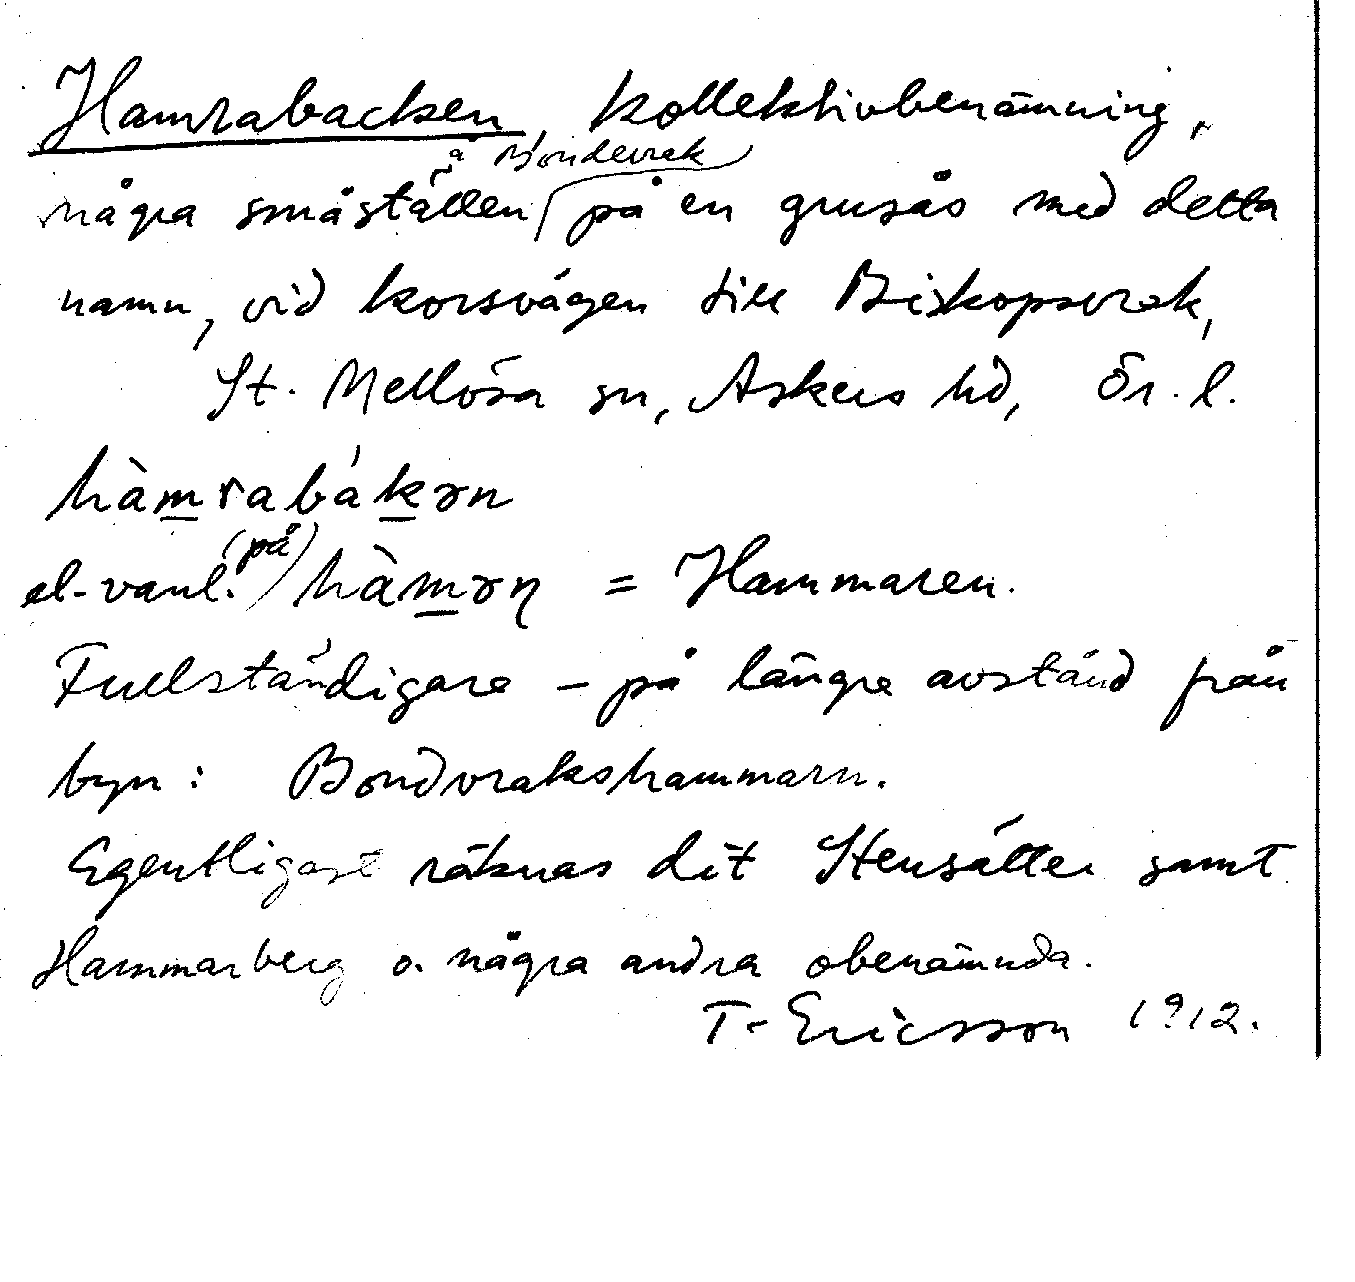 Hamrabacken, kollektivbenämning,
några småställen å Bondevrak på en grusås med detta
namn, vid korsvägen till Biskopsvrak,
St. Mellösa sn, Askers hd, Ör. l.
hàmrabákən
el. vanl. (på) hàməɳ = Hammaren.
Fullständigare – på längre avstånd från
byn: Bondvrakshammarn.
Egentligast räknas dit Stensätter samt
Hammarberg o. några andra obenämnda.
T. Ericsson 1912.